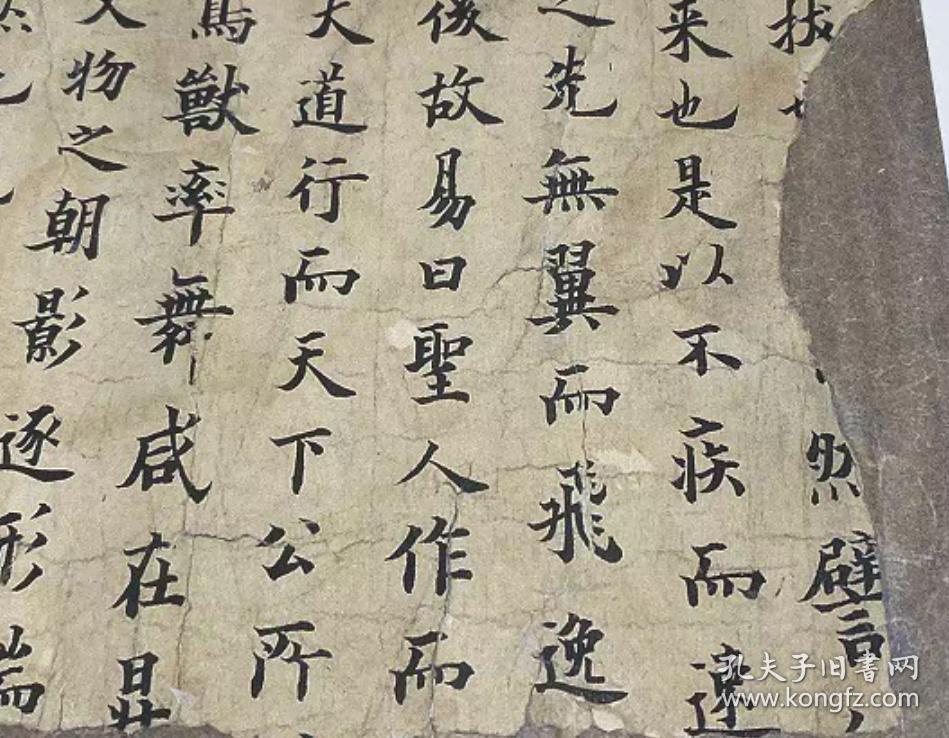 拔
然譬
来也是以不疾而速
之先無翼而飛逸
後故易曰聖人作而
大道行而天下公所
獸率舞咸在
文物之朝影
逐形端
孔夫子旧書网
www.kongfz.com